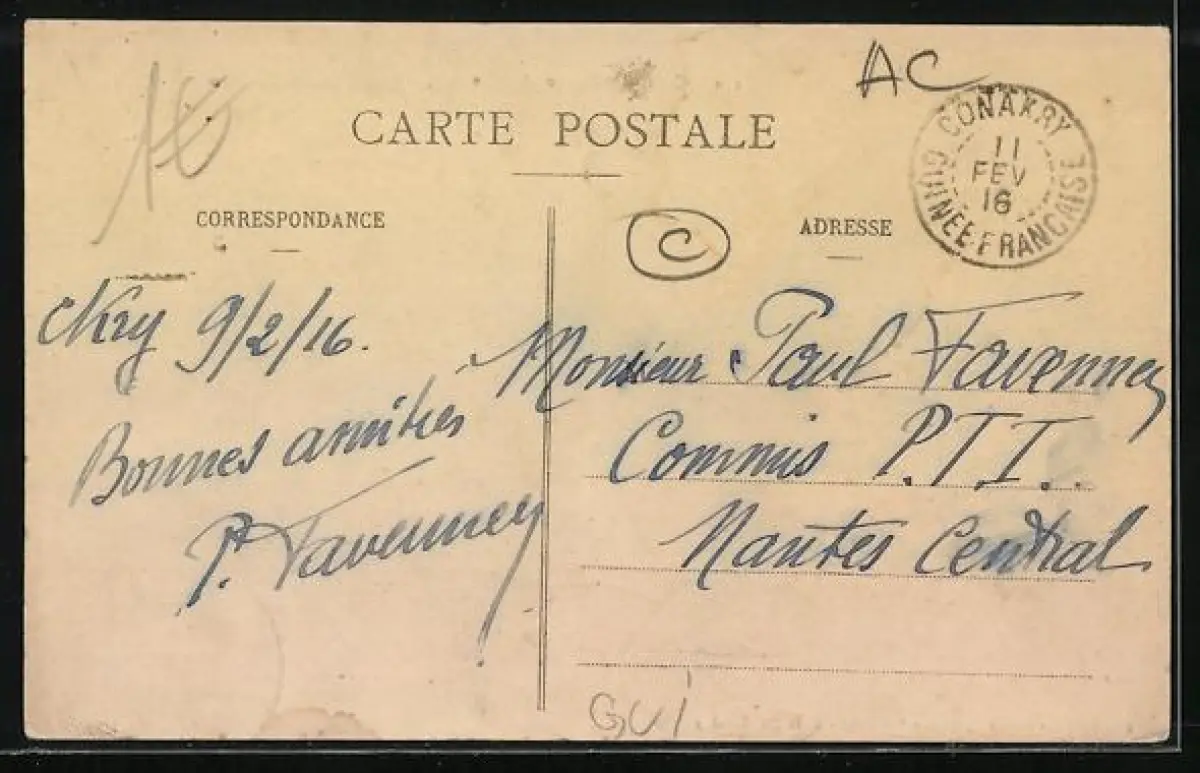 AC
CARTE POSTALE
CONAKRY
11
FEV
16
GUINÉE FRANCAISE
CORRESPONDANCE
ADRESSE
C
Ckry 9/2/16.
Bonnes amitiés
P. Favennec
Monsieur Paul Favennec
Commis P.T.T.
Nantes Central
GUI